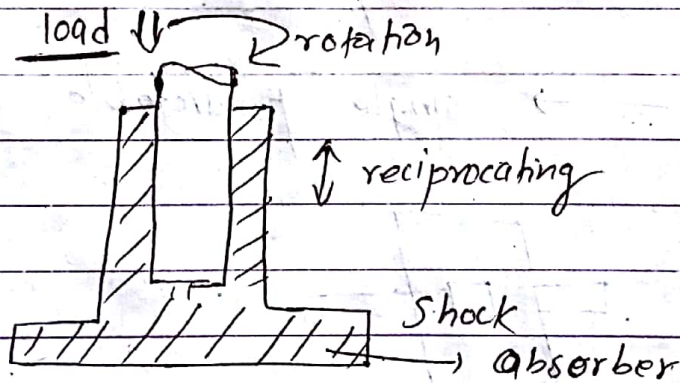 load
rotation
reciprocating
Shock
absorber